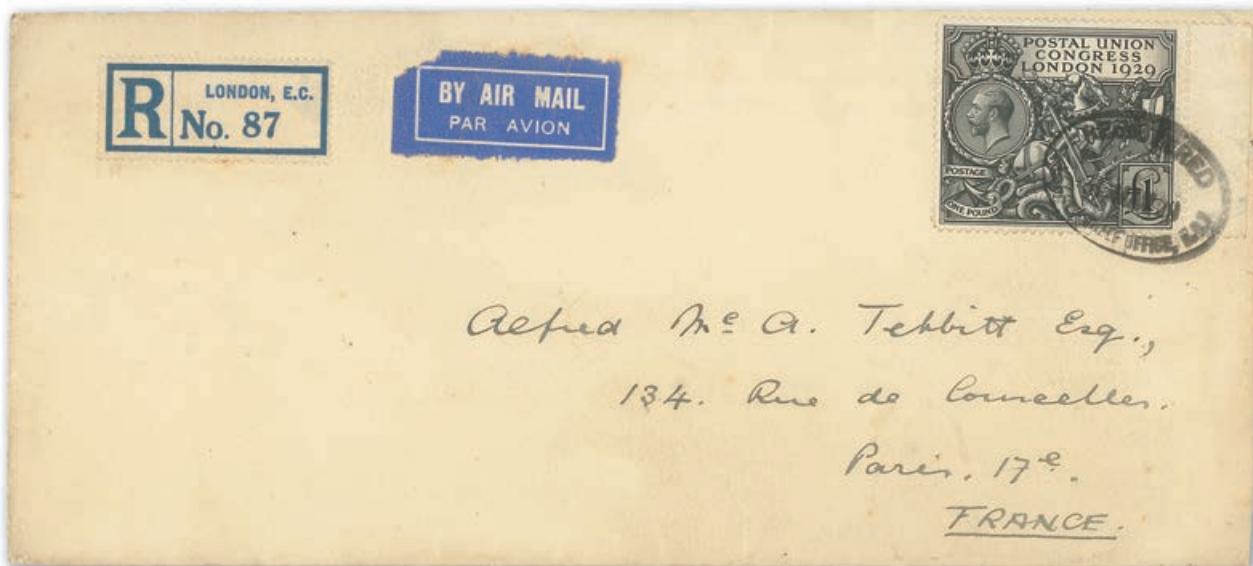 R
LONDON, E.C.
No. 87
BY AIR MAIL
PAR AVION
POSTAL UNION
CONGRESS
LONDON 1929
POSTAGE
ONE POUND
£1
REGISTERED
CHIEF OFFICE, E.C.1
Alfred Mc A. Tebbitt Esq.,
134. Rue de Courcelles.
Paris. 17e.
FRANCE.